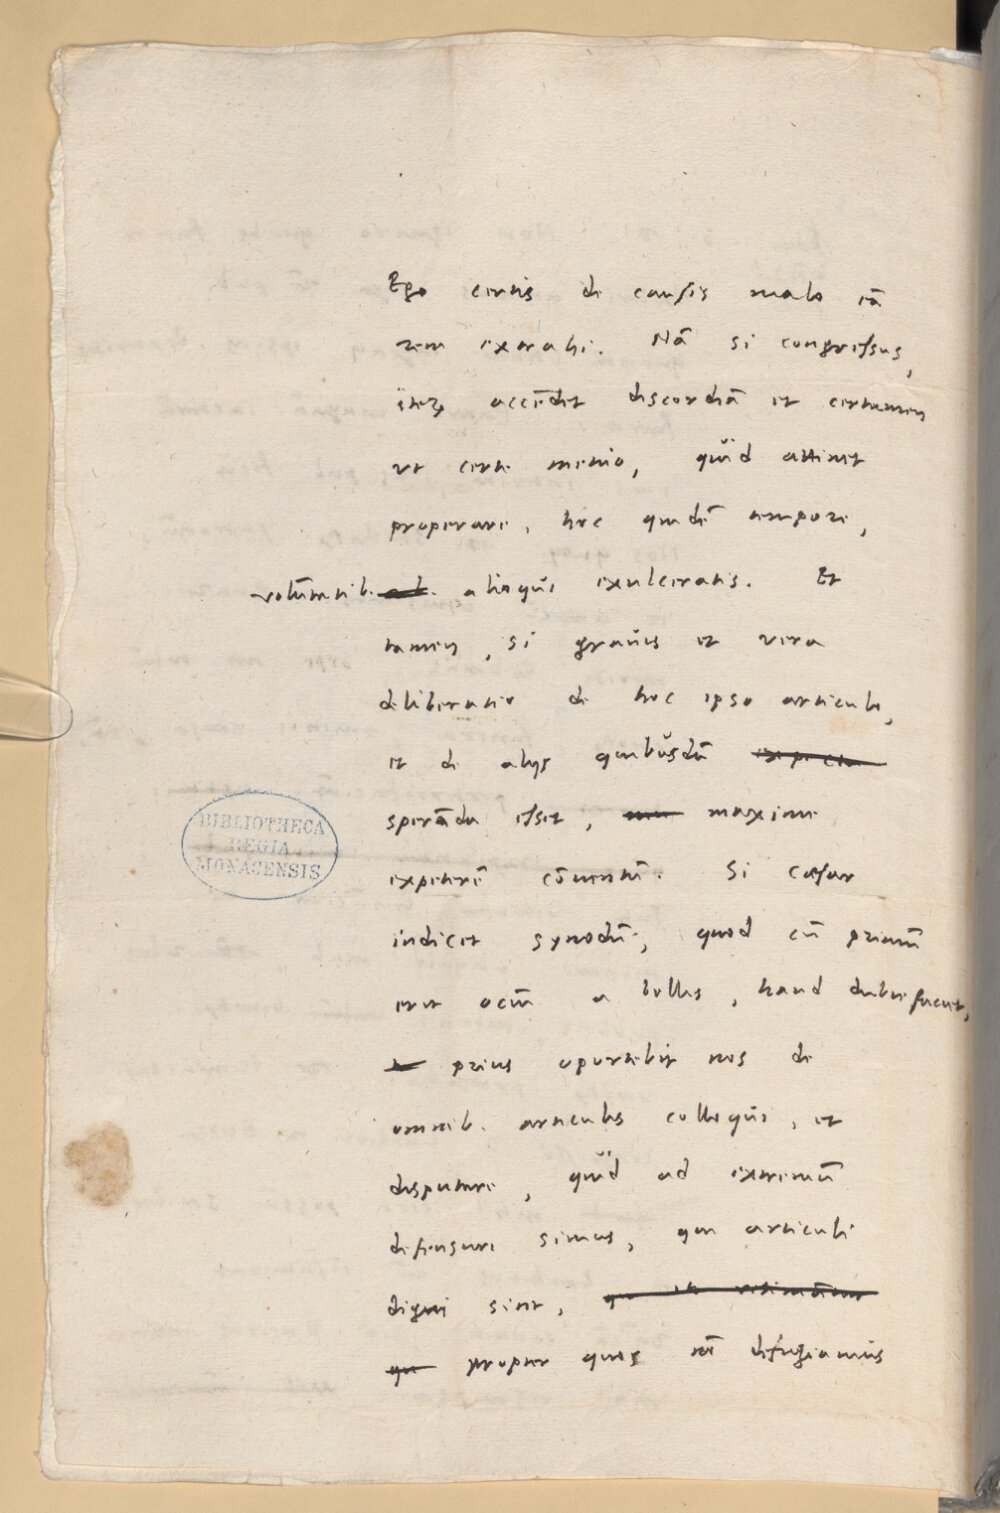 Ego certis de causis malo eā
rem extrahi. Nā si congressus,
iteꝝ accēdet discordiā et certamen
ut certe metuo, quid attinet
properare, hoc quidē tempore,
volūntatib. alioqui exulceratis. Et
tamen, si gravis et vera
deliberatio de hoc ipso articulo,
et de alijs quibusdā
sperāda esset, maxime
expeterē cōventū. Si cæsar
indicet synodū, quod cū primū
erit ociū a bellis, haud dubie faciet,
prius oportebit nos de
omnib. articulis colloqui, et
disputare, quid ad extremū
defensuri simus, qui articuli
digni sint,
propter quos nō defugiamus
BIBLIOTHECA
REGIA
MONACENSIS